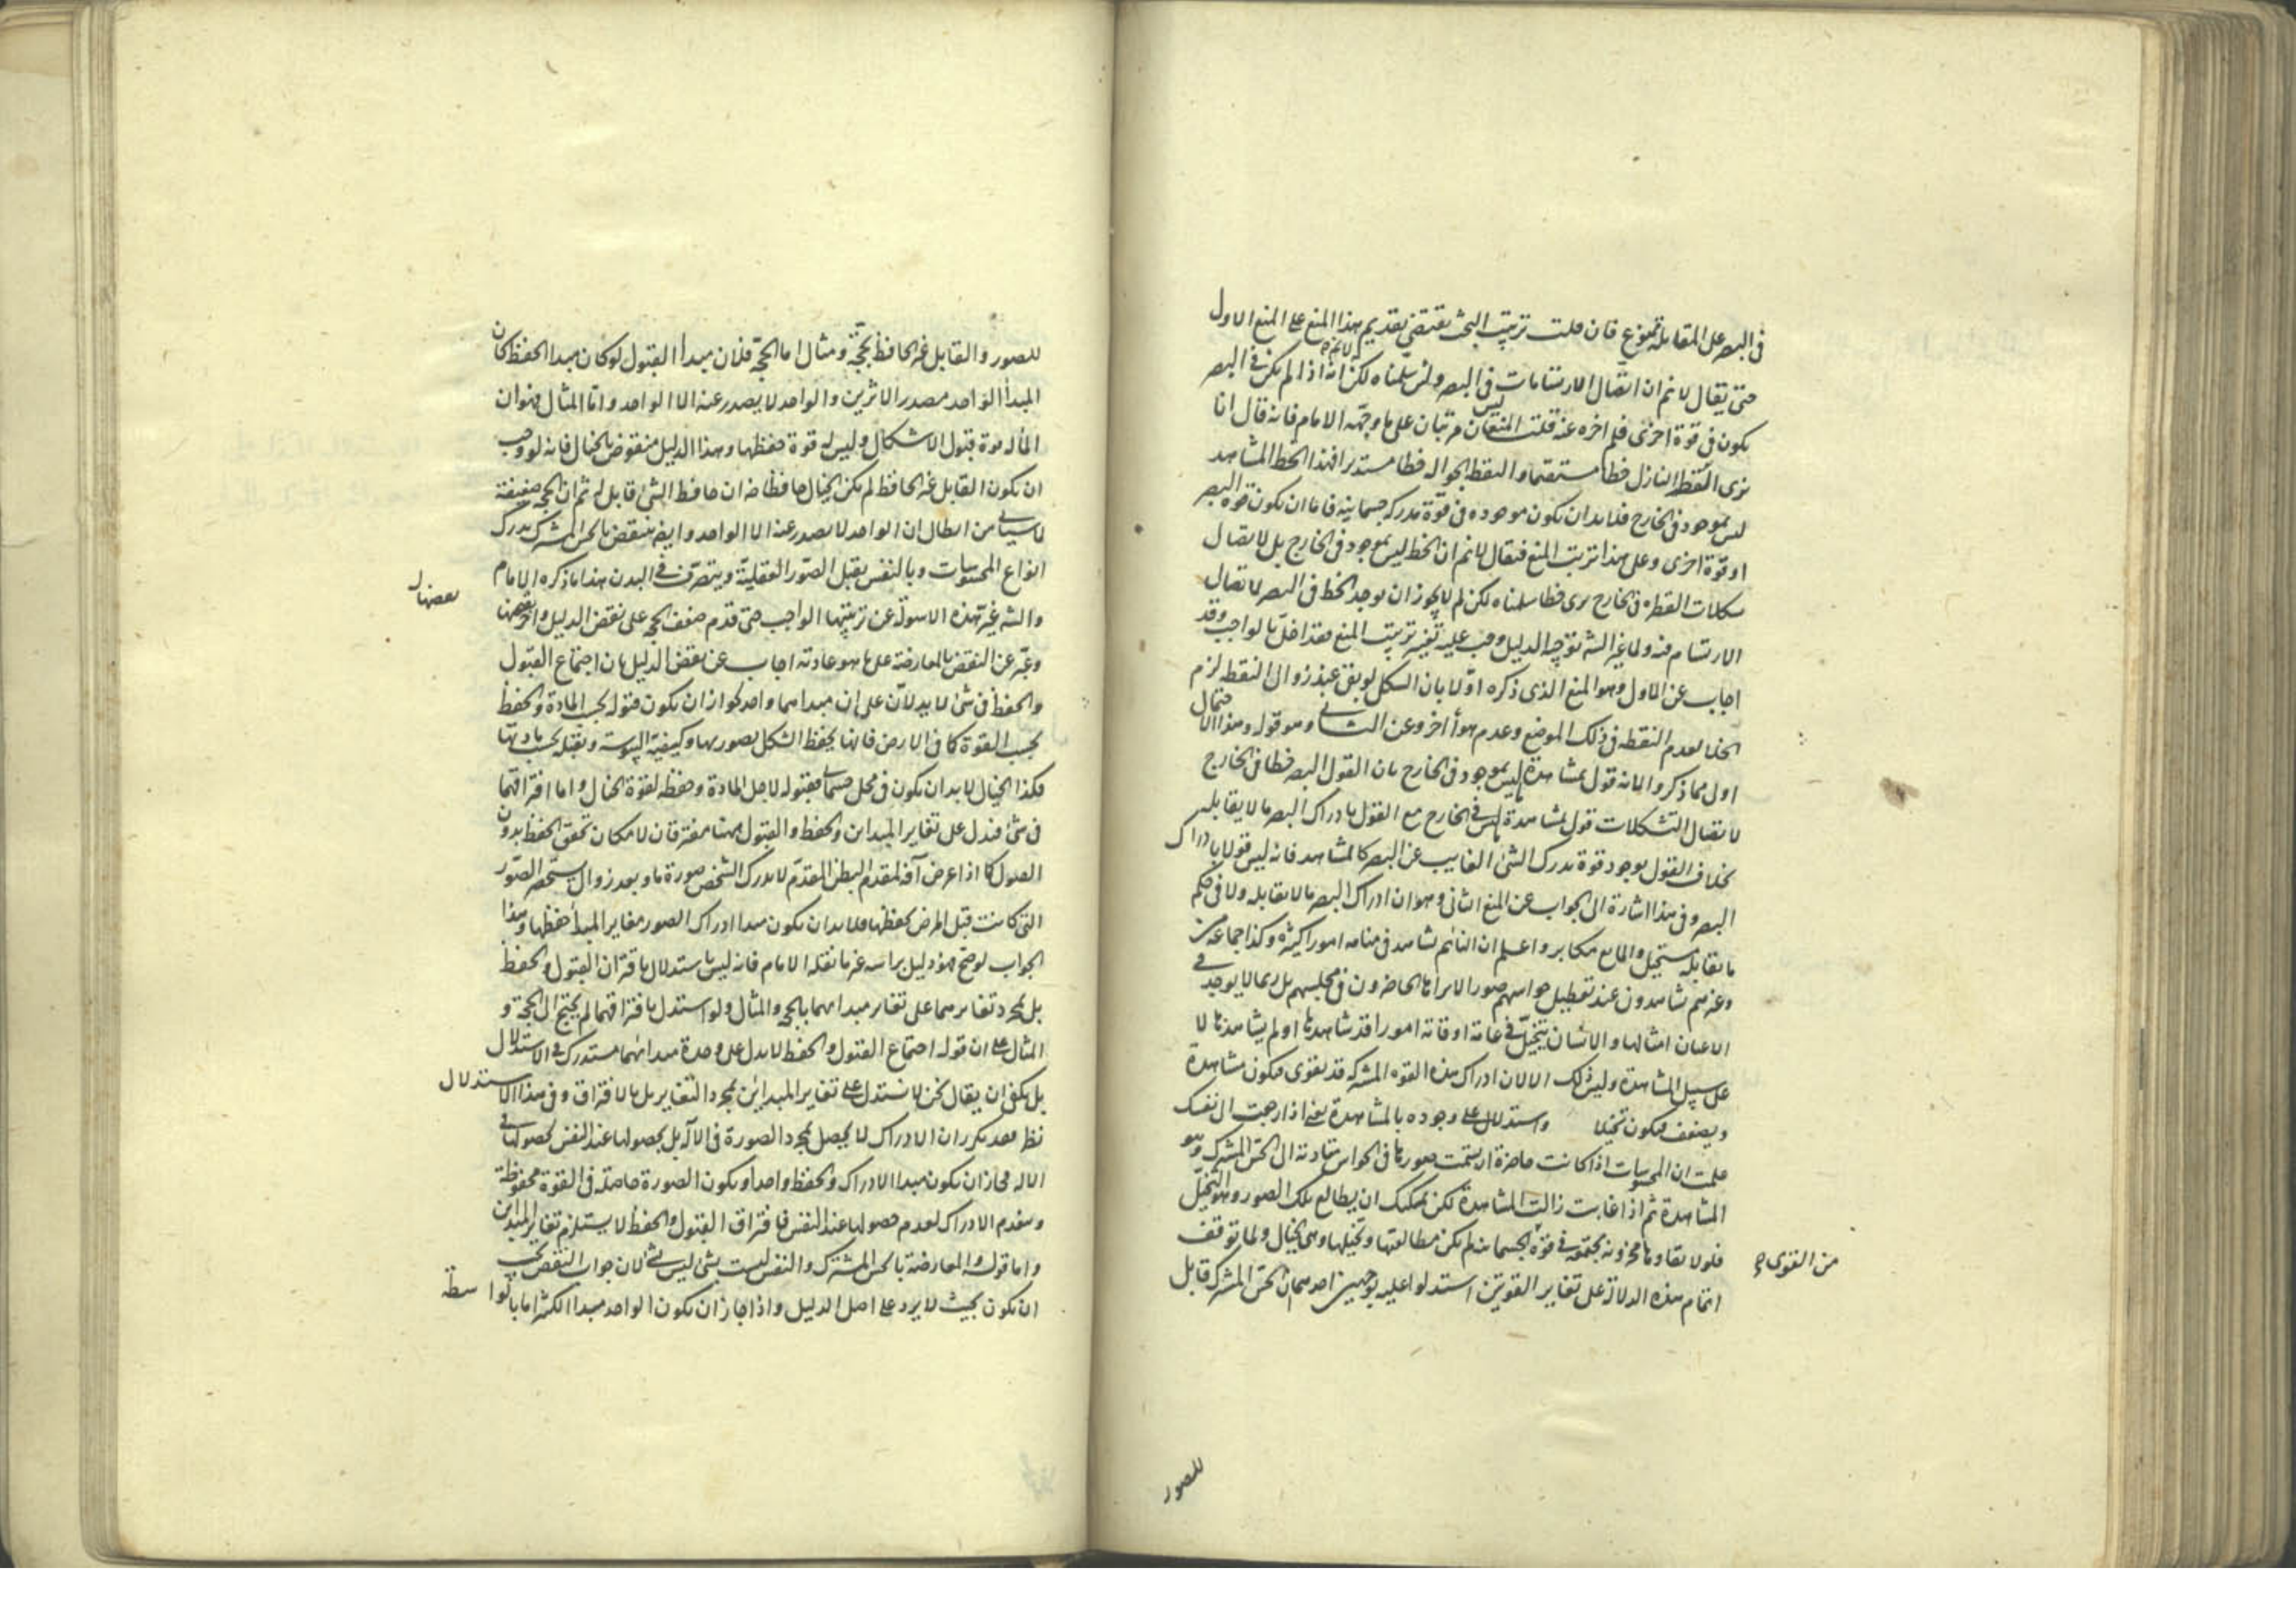 فى البصر على المقابلة ممنوع فان قلت ترتيب البحث يقتضى تقديم هذا المنع على المنع الاول
حتى يقال لا نم ان اتصال الارتسامات فى البصر ولئن سلمناه لكن لا نم انه اذا لم يكن فى البصر
يكون فى قوة اخرى فلم اخره عنه قلت المنعان ليس مرتبان على ما وجهه الامام فانه قال انا
نرى القطر النازل خطا مستقيما والنقطة الجوالة خطا مستديرا فهذا الخط المشاهد
ليس بموجود فى الخارج فلا بد ان يكون موجوده فى قوة مدركة جسمانية فاما ان يكون قوة البصر
او قوة اخرى وعلى هذا ترتيب المنع فيقال لا نم ان الخط ليس بموجود فى الخارج بل لاتصال
تشكلات القطرة فى الخارج يرى خطا سلمناه لكن لم لا يجوز ان يوجد الخط فى البصر لاتصال
الارتسام فيه ولما غير الش توجيه الدليل وجب عليه تغيير ترتيب المنع فقد اخل بالواجب وقد
اجاب عن الاول وهو المنع الذى ذكره اولا بان الشكل لو بقى عند زوال النقطة لزم
الخلا لعدم النقطة فى ذلك الموضع وعدم هوأ اخر وعن الثانى وهو قوله وهذا الاحتمال
اولى مما ذكروا لانه قول بمشاهدة ما ليس بموجود فى الخارج بان القول البصر خطا فى الخارج
لاتصال التشكلات قول بمشاهدة ما ليس فى الخارج مع القول بادراك البصر ما لا يقابله
بخلاف القول بوجود قوة يدرك الشئ الغايب عن البصر كالمشاهد فانه ليس قولا بادراك
البصر وفى هذا اشارة الى الجواب عن المنع الثانى وهو ان ادراك البصر ما لا يقابله ولا فى حكم
ما يقابله مستحيل والمانع مكابر واعلم ان النائم يشاهد فى منامه امورا كثيرة وكذا جماعة من
وغيرهم يشاهدون عند تعطيل حواسهم صورا لا يراها الحاضرون فى مجلسهم بل ربما لا يوجد فى
الاعيان امثالها والانسان يتخيل فى عامة اوقاته امورا قد شاهدها او لم يشاهدها لا
على سبيل المشاهدة وليس ذلك الا لان ادراك هذه القوة المشتركة قد يقوى فيكون مشاهدة
ويضعف فيكون تخيلا واستدلال على وجوده بالمشاهدة يعنى اذا رجعت الى نفسك
علمت ان المحسوسات اذا كانت حاضرة ارتسمت صورها فى الحواس تتادى الى الحس المشترك وهو
المشاهدة ثم اذا غابت زالت المشاهدة لكن يمكنك ان يطالع تلك الصور وهو التخيل
فلولا بقاوها مخزونة مجتمعة فى قوة الجسمانية لم يكن مطالعتها وتخيلها وهى الخيال ولما توقف
من القوى صح
اتمام هذه الدلالة على تغاير القوتين استدلوا عليه بوجهين احدهما ان الحس المشترك قابل
للصور
للصور والقابل غير الحافظ بحجة ومثال اما الحجة فلان مبدأ القبول لو كان مبدا الحفظ كان
المبدأ الواحد مصدر الاثرين والواحد لا يصدر عنه الا الواحد واما المثال فهو ان
الماء له قوة قبول الاشكال وليس له قوة حفظها وهذا الدليل منقوض بالخيال فانه لو وجب
ان يكون القابل غير الحافظ لم يكن الخيال حافظا ضه ان حافظ الشئ قابل له ثم ان الحجة ضعيفة
لما سياتى من ابطال ان الواحد لا يصدر عنه الا الواحد وايضا ينتقض بالحس المشترك يدرك
انواع المحسوسات وبالنفس يقبل الصور العقلية ويتصرف فى البدن هذا ما ذكره الامام
والش غير هذه الاسولة عن ترتيبها الواجب حتى قدم ضعف الحجة على نقض الدليل واخر بعضها
بعضها
وعبر عن النقض بالمعارضة على ما هو عادته اجاب عن نقض الدليل بان اجتماع القبول
والحفظ فى شئ لا يدلان على ان مبداهما واحد لجواز ان يكون قبوله بحسب المادة والحفظ
بحسب القوة كما فى الارض فانها يحفظ الشكل بصورها وكيفية اليبوسة وتقبله بحسب مادتها
فكذا الخيال لا بد ان يكون فى محل جسمانى فقبوله لاجل المادة وحفظه لقوة الخيال واما افتراقهما
فى شئ فيدل على تغاير المبداين والحفظ والقبول ههنا مفترقان لامكان تحقق الحفظ بدون
القبول كما اذا عرض آفة لمقدم البطن المقدم لا يدرك الشخص صورة ما وبعد زوال يستحضر الصور
التى كانت قبل المرض يحفظها فلا بد ان يكون مبدا ادراك الصور مغاير المبدا حفظها وهذا
الجواب لو صح فهو دليل براسه غير ما نقله الامام فانه ليس باستدلال بافتراق القبول والحفظ
بل بمجرد تغايرهما على تغاير مبدايهما بالحجة والمثال ولو استدل بافتراقهما لم يحتج الى الحجة و
المثال على ان قوله اجتماع القبول والحفظ لا يدل على وحدة مبدائهما مستدرك فى الاستدلال
بل يكفى ان يقال نحن لا نستدل على تغاير المبداين بمجرد التغاير بل بالافتراق وفى هذا الاستدلال
نظر فقد تكرر ان الادراك لا يحصل بمجرد الصورة فى الالة بل بحصولها عند النفس لحصولها فى
الالة فجاز ان يكون مبدا الادراك والحفظ واحدا ويكون الصورة حاصلة فى القوة محفوظة
وينعدم الادراك لعدم حصولها عند النفس فافتراق القبول والحفظ لا يستلزم تغاير المبداين
واما قوله والمعارضة بالحس المشترك والنفس ليست بشئ ليس بشئ لان جواب النقض يجب
ان يكون بحيث لا يرد على اصل الدليل واذا جاز ان يكون الواحد مبدا الكثير اما بالواسطة